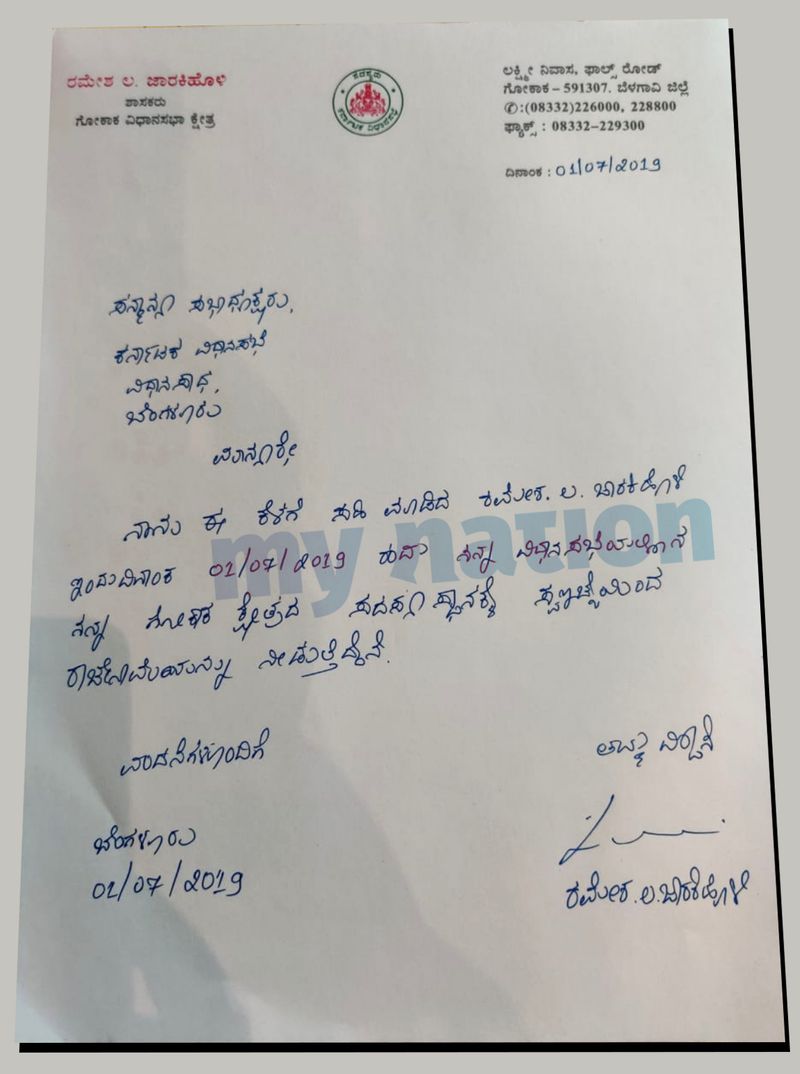 ರಮೇಶ ಲ. ಜಾರಕಿಹೊಳಿ
ಶಾಸಕರು
ಗೋಕಾಕ ವಿಧಾನಸಭಾ ಕ್ಷೇತ್ರ
ಸದಸ್ಯರು
ಕರ್ನಾಟಕ ವಿಧಾನಸಭೆ
ಲಕ್ಷ್ಮೀ ನಿವಾಸ, ಫಾಲ್ಸ್ ರೋಡ್
ಗೋಕಾಕ – 591307. ಬೆಳಗಾವಿ ಜಿಲ್ಲೆ
✆:(08332)226000, 228800
ಫ್ಯಾಕ್ಸ್ : 08332–229300
ದಿನಾಂಕ : 01/07/2019
ಸನ್ಮಾನ್ಯ ಸಭಾಧ್ಯಕ್ಷರು,
ಕರ್ನಾಟಕ ವಿಧಾನಸಭೆ
ವಿಧಾನಸೌಧ,
ಬೆಂಗಳೂರು
ಮಾನ್ಯರೇ,
ನಾನು ಈ ಕೆಳಗೆ ಸಹಿ ಮಾಡಿದ ರಮೇಶ. ಲ. ಜಾರಕಿಹೊಳಿ
ಇಂದು ದಿನಾಂಕ 01/07/2019 ರಂದು ನನ್ನ
ನನ್ನ ಗೋಕಾಕ ಕ್ಷೇತ್ರದ ಸದಸ್ಯ ಸ್ಥಾನಕ್ಕೆ ಸ್ವಇಚ್ಛೆಯಿಂದ
ರಾಜೀನಾಮೆಯನ್ನು ನೀಡುತ್ತಿದ್ದೇನೆ.
my nation
ವಂದನೆಗಳೊಂದಿಗೆ
ತಮ್ಮ ವಿಶ್ವಾಸಿ
ಬೆಂಗಳೂರು
01/07/2019
ರಮೇಶ.ಲ.ಜಾರಕಿಹೊಳಿ